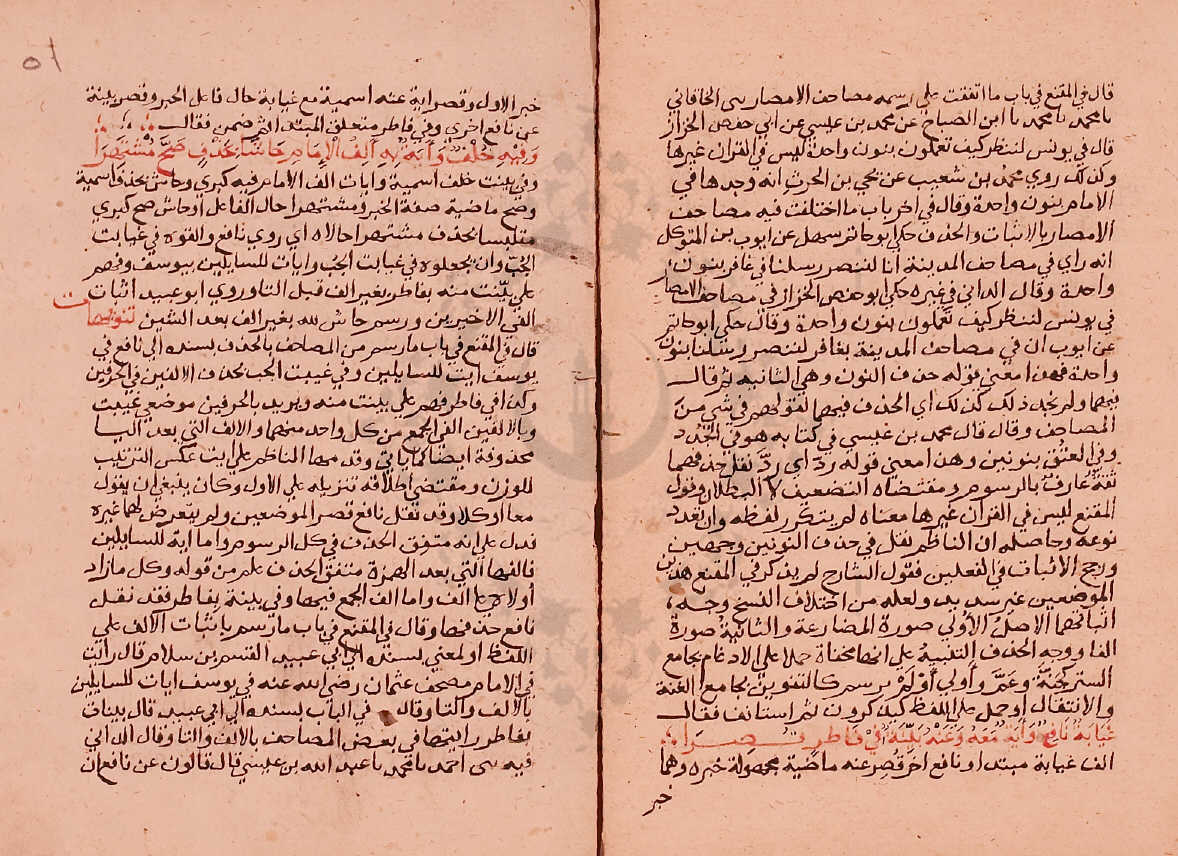 قال في المقنع في باب ما اتفقت على رسمه مصاحف الامصار سى الخاقاني
نا محمد نا محمد نا ابن الصباح عن محمد بن عيسي عن ابي حفص الخزاز
قال في يونس لننظر كيف تعملون بنون واحدة ليس في القران غيرها
وكذلك روي محمد بن شعيب عن يحي بن الحرث انه وجدها في
الامام بنون واحدة وقال في اخر باب ما اختلفت فيه مصاحف
الامصار بالاثبات والحذف حكي ابو حاتم سهل عن ايوب بن المتوكل
انه راي في مصاحف المدينة انا لننصر رسلنا في غافر بنون
واحدة وقال الداني في غيره حكي ابو حفص الخزاز في مصاحف الامصار
في يونس لننظر كيف تعملون بنون واحدة وقال حكي ابو حاتم
عن ايوب ان في مصاحف المدينة بغافر لننصر رسلنا بنون
واحدة فهذا معني قوله حذف النون وهي الثانيه ثم قال
فيهما ولم نجد ذلك كذلك اي الحذف فيهما لقولهم في شي من
المصاحف وقال قال محمد بن عيسي في كتابه هو في الجُدُد
وفي العتُق بنونين وهذا معني قوله ردّ اي ردّ نقل حذفهما
ثقة عارف بالرسوم ومقتضاه التضعيف لا البطلان وقول
المقنع ليس في القران غيرها معناه لم يتكرر لفظه وان تعدد
نوعه وحاصله ان الناظم نقل في حذف النونين وجهين
ورجح الاثبات في الفعلين فقول الشارح لم يذكر في المقنع هذين
الموضعين غير سديد ولعله من اختلاف النسخ وجه
اثباتهما الاصل الأولي صورة المضارعة والثانية صورة
الفا ووجه الحذف التنبية على انها مخفاة حملا على الادغام بجامع
الستر كجَنَّة وعَمَّ وأولي أوْلَمْ يرسم كالتنوين بجامع الغنة
والانتقال او حمل على اللفظ كيذكرون ثم استانف فقال
غَيَابَة نَافِعٌ وَآيَةٌ مَعَهُ وَعَنْهُ بَيِّنَةٌ فِي فَاطِرٍ قُصِرَا
الف غيابة مبتدا ونافع اخر قُصِر عنه ماضية مجهولة خبره وهما
خبر
خبر الاول وقصر اية عنه اسمية مع غيابة حال فاعل الخبر وقصر بينة
عن نافع اخري وفي فاطر متعلق المبتدا ثم ضمن فقال
وَفِيْهِ خُلْفٌ وَآيَاتٌ بِهِ أَلِفُ الْاِمَامِ حَاشَا بِحَذْفٍ صَحَّ مُشْتَهَرَا
وفي بينت خلف اسمية وايات الف الامام فيه كبري وحاش بحذف اسمية
وصح ماضية صفة الخبر ومشتهرا حال الفاعل او حاش صح كبري
متلبسا بحذف مشتهرا حالاه اي روي نافع والقوه في غيابت
الجُبّ وان يجعلوه في غيابت الجُب وايات للسايلين بيوسف وفهم
على بيّنت منه بفاطر بغير الف قبل التا وروي ابو عبيد اثبات
الفي الاخيرين ورسم حاش لله بغير الف بعد الشين
قال في المقنع في باب ما رسم من المصاحف بالحذف بسنده الي نافع في
يوسف ايت للسايلين وفي غيبت الجب بحذف الالفين في الحرفين
وكذا في فاطر فهم على بينت منه ويريد بالحرفين موضعي غيبت
وبالالفين الفي الجمع من كل واحد منهما والالف التي بعد اليا
محذوفة ايضا كما ياتي وقدمها الناظم على ايت عكس الترتيب
للوزن ومقتضي اطلاقه تنزيله على الاول وكان ينبغي ان يقول
معا او كلا وقد نقل نافع قصر الموضعين ولم يتعرض لهما غيره
فدل على انه متفق الحذف في كل الرسوم واما اية للسايلين
فالفها التي بعد الهمزة متفق الحذف علم من قوله وكل مازاد
أولاه على الف واما الف الجمع فيها وفي بينة بفاطر فقد نقل
نافع حذفها وقال في المقنع في باب ما رسم باثبات الالف على
اللفظ او لمعني بسنده الي ابي عبيد القسم بن سلام قال رايت
في الامام مصحف عثمان رضي الله عنه في يوسف ايات للسايلين
بالالف والتا وقال في الباب بسنده الي ابي عبيد قال بينات
بفاطر رايتها في بعض المصاحف بالالف والتا وقال الداني
فيه سى احمد نا محمد نا عبد الله بن عيسي قال قالون عن نافع ان